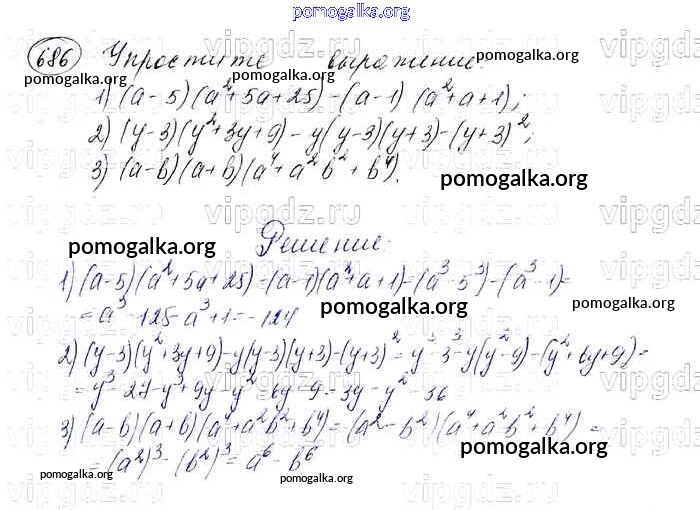 pomogalka.org
686 Упростите выражение:
pomogalka.org pomogalka.org
1) (a-5)(a²+5a+25)-(a-1)(a²+a+1);
2) (y-3)(y²+3y+9)-y(y-3)(y+3)-(y+3)²;
3) (a-b)(a+b)(a⁴+a²b²+b⁴).
pomogalka.org
vipgdz.ru
pomogalka.org
Решение:
1) (a-5)(a²+5a+25)=(a-1)(a²+a+1)=(a³-5³)-(a³-1)=
=a³-125-a³+1=-124
pomogalka.org
2) (y-3)(y²+3y+9)-y(y-3)(y+3)-(y+3)²=y³-3³-y(y²-9)-(y²+6y+9)=
=y³-27-y³+9y-y²-6y-9=3y-y²-36
3) (a-b)(a+b)(a⁴+a²b²+b⁴)=(a²-b²)(a⁴+a²b²+b⁴)=
pomogalka.org
=(a²)³-(b²)³=a⁶-b⁶
pomogalka.org pomogalka.org pomogalka.org